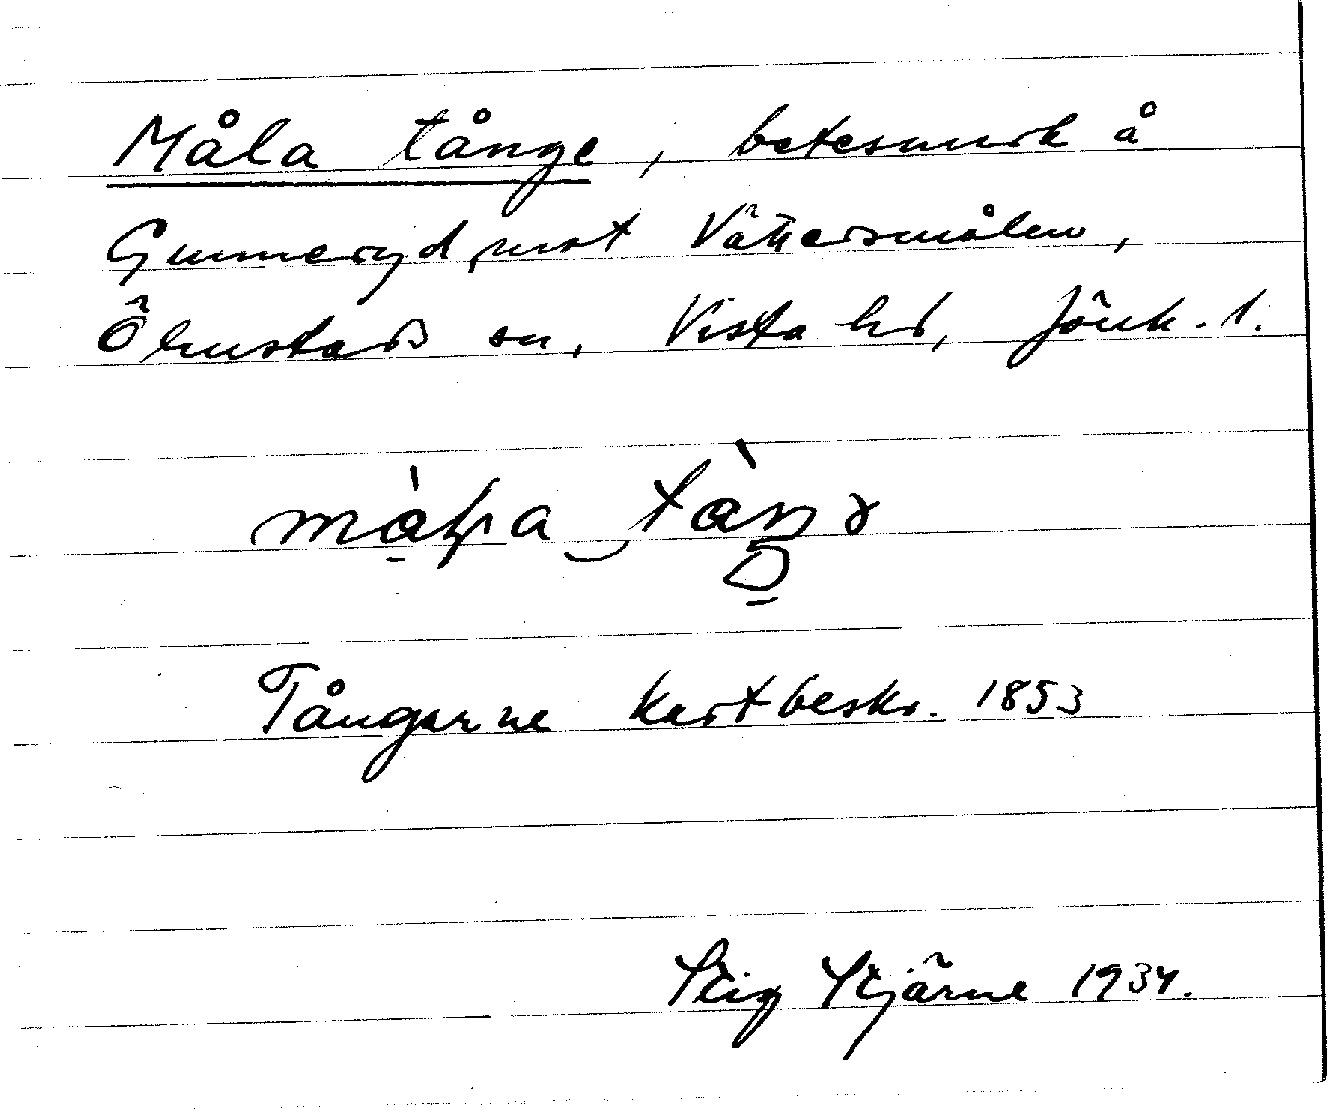 Måla tånge, betesmark å
Gunneryd mot Vättersmålen,
Ölmstads sn, Vista hd, Jönk. l.
Tångarne kartbeskr. 1853
Stig Stjärne 1934.